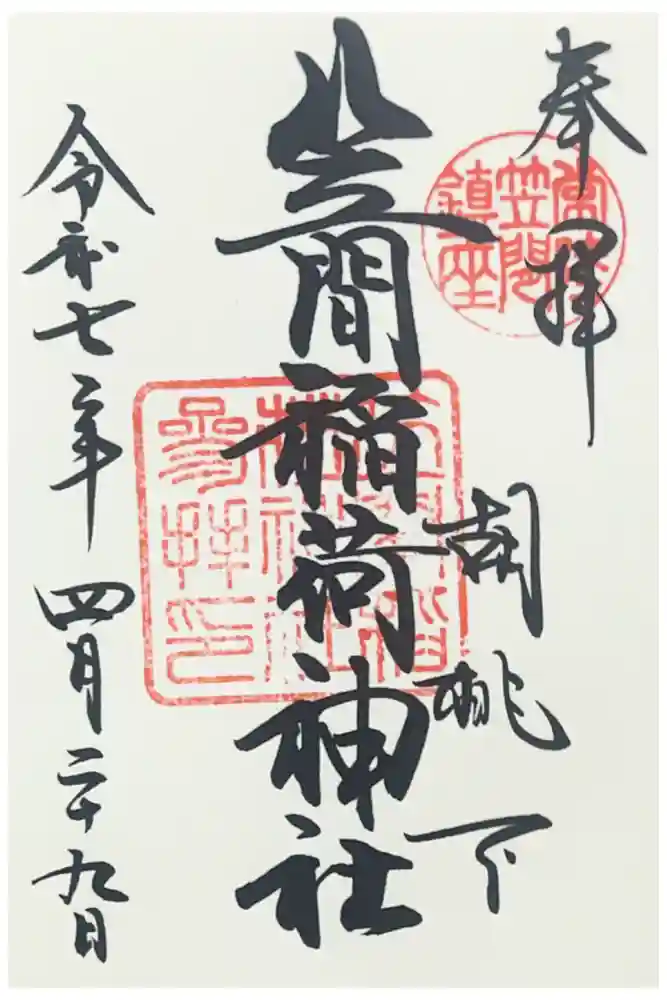 奉拝
胡桃下
笠間稲荷神社
令和七年四月二十九日
常陸
笠間
鎮座
笠間稲
荷神社
参拝印